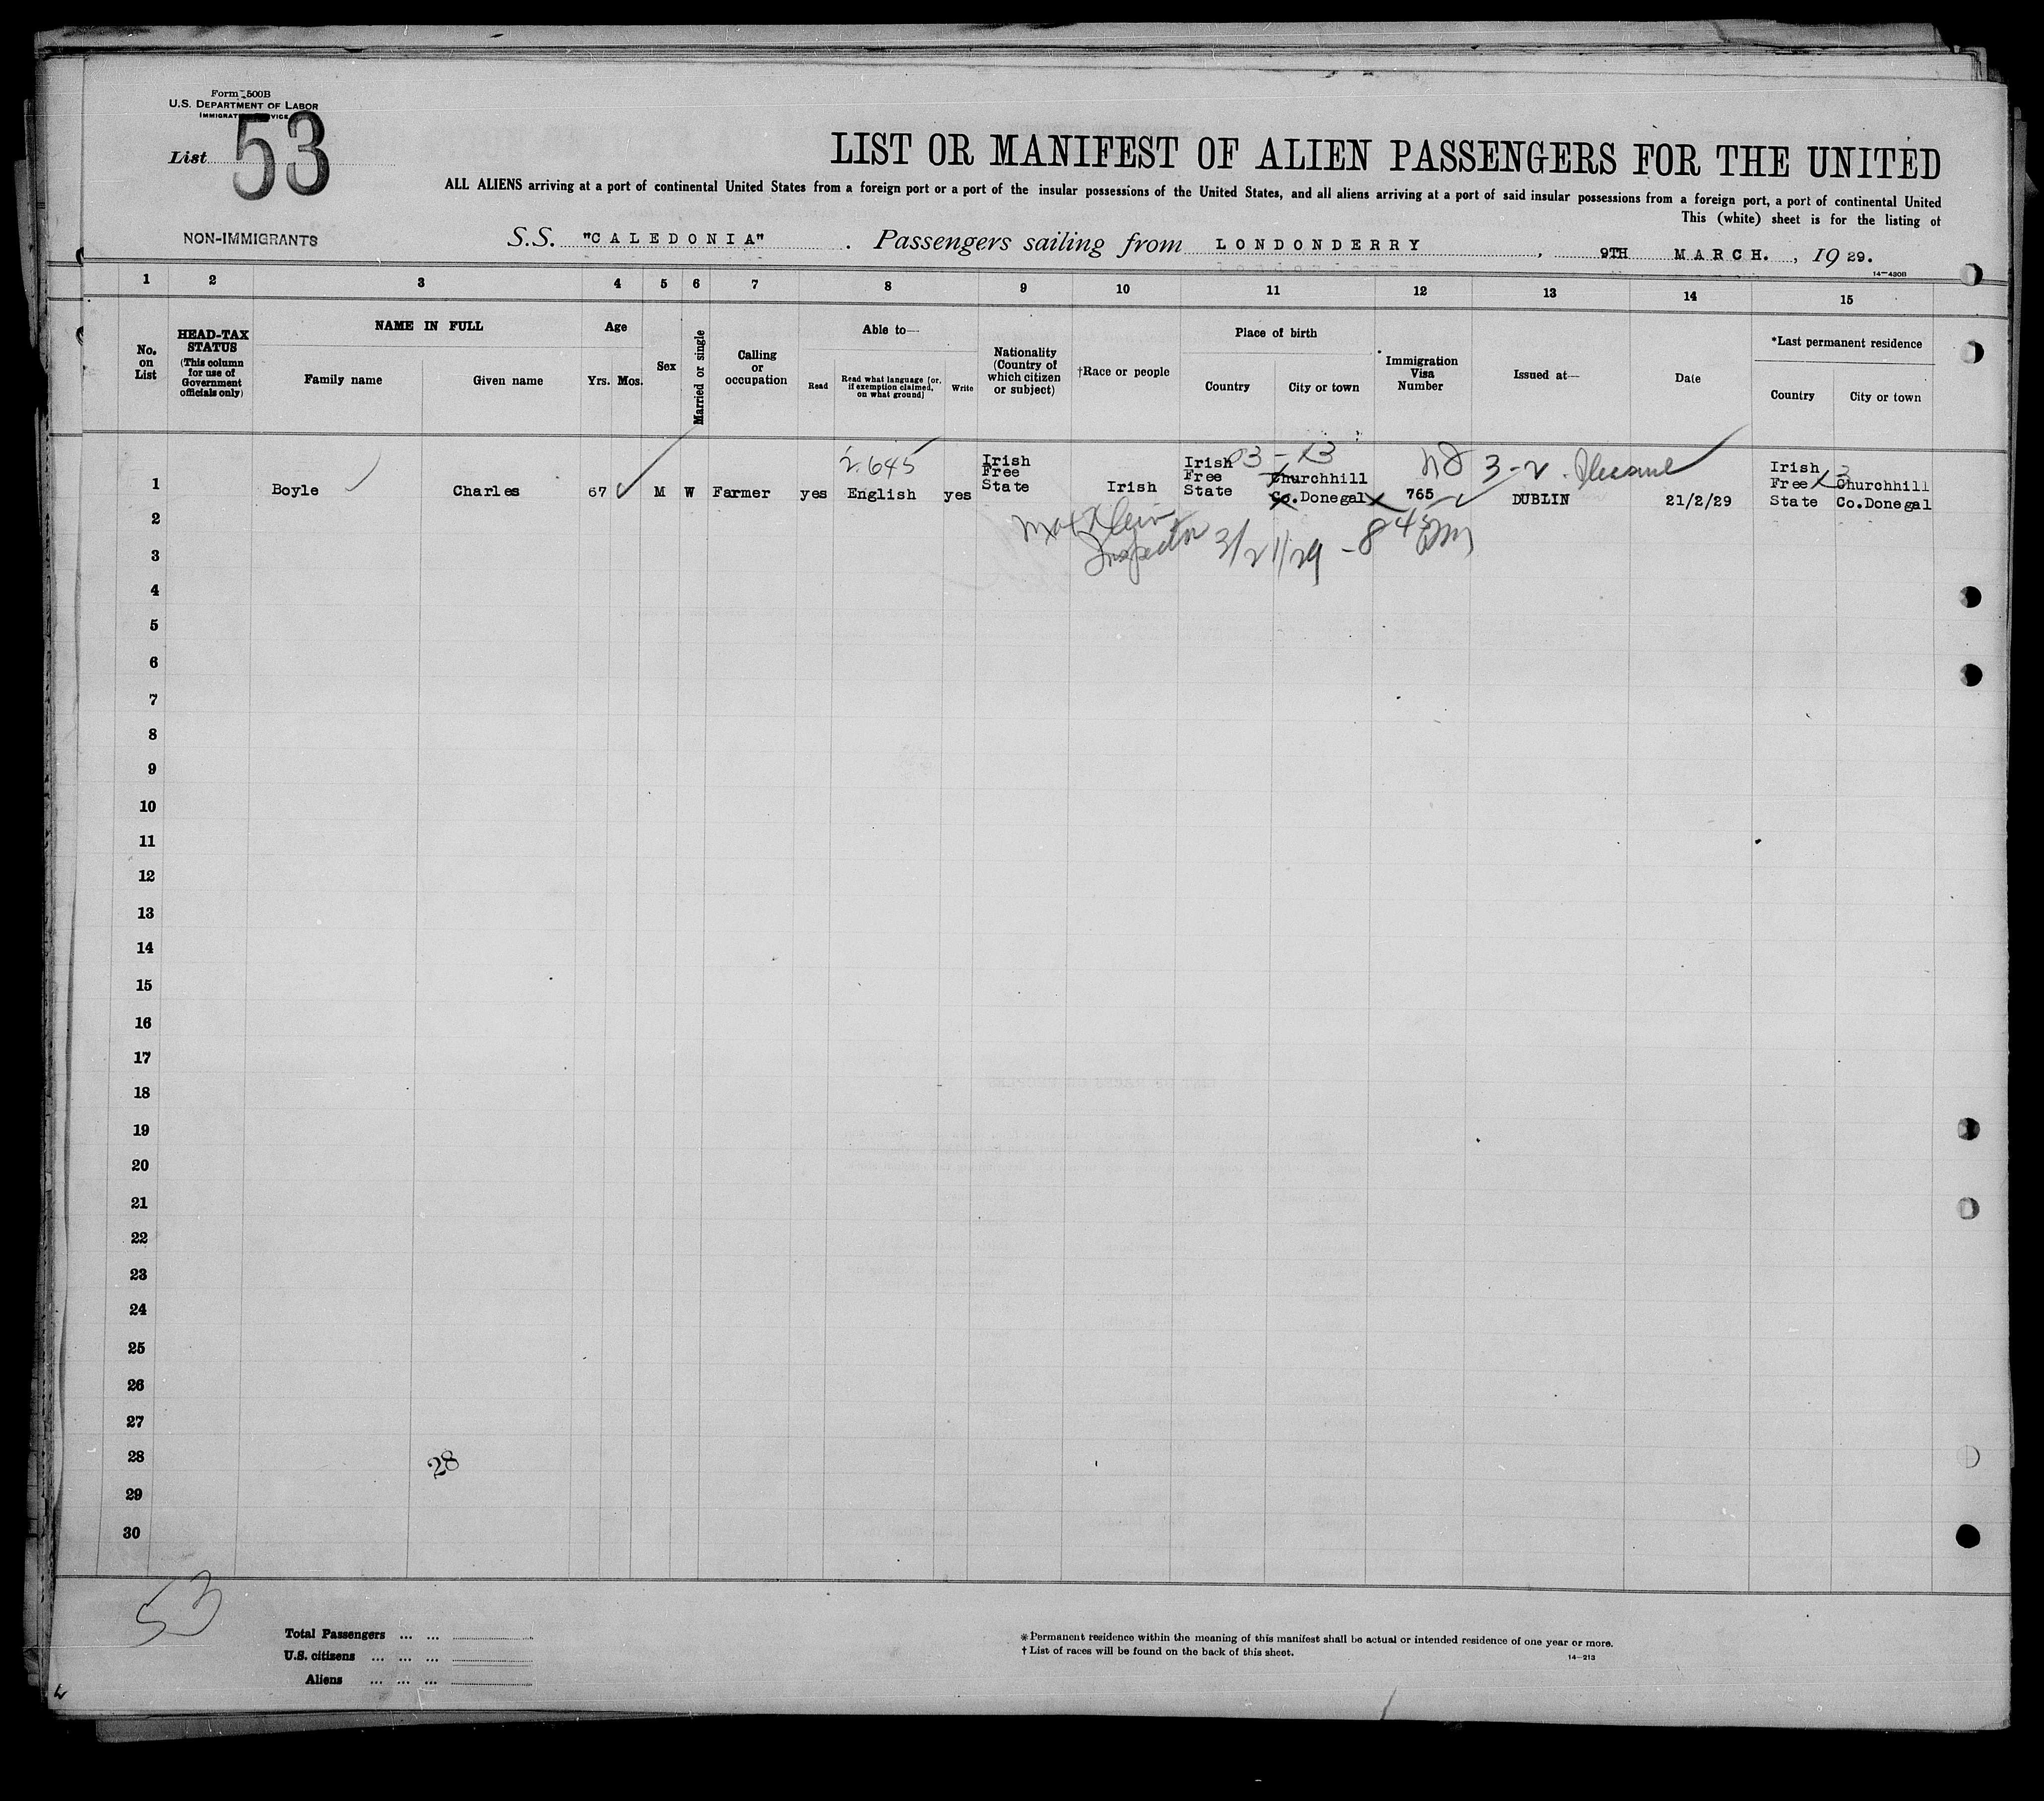 Form 500B
U.S. DEPARTMENT OF LABOR
IMMIGRATION SERVICE
List 53
LIST OR MANIFEST OF ALIEN PASSENGERS FOR THE UNITED
ALL ALIENS arriving at a port of continental United States from a foreign port or a port of the insular possessions of the United States, and all aliens arriving at a port of said insular possessions from a foreign port, a port of continental United
This (white) sheet is for the listing of
NON-IMMIGRANTS
S.S. "CALEDONIA" . Passengers sailing from LONDONDERRY , 9TH MARCH. , 19 29.
14-430B
1 2 3 4 5 6 7 8 9 10 11 12 13 14 15
No. on List
HEAD-TAX STATUS
(This column for use of Government officials only)
NAME IN FULL
Family name Given name
Age
Yrs. Mos.
Sex
Married or single
Calling or occupation
Able to—
Read
Read what language [or, if exemption claimed, on what ground]
Write
Nationality (Country of which citizen or subject)
†Race or people
Place of birth
Country City or town
Immigration Visa Number
Issued at—
Date
*Last permanent residence
Country City or town
2.645 3-13 ND 3-2
1 Boyle Charles 67 M W Farmer yes English yes Irish Free State Irish Irish Free State Churchhill Co.Donegal 765 DUBLIN 21/2/29 Irish Free State Churchhill Co.Donegal
Max Klein
Inspector 3/21/29 - 8 45
2
3
4
5
6
7
8
9
10
11
12
13
14
15
16
17
18
19
20
21
22
23
24
25
26
27
28 28
29
30
53
Total Passengers ... ...
U.S. citizens ... ... ...
Aliens ... ... ...
*Permanent residence within the meaning of this manifest shall be actual or intended residence of one year or more.
† List of races will be found on the back of this sheet.
14-213